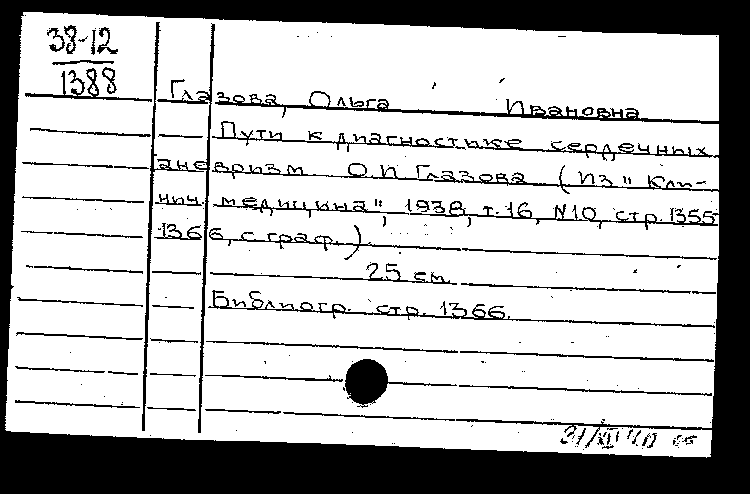 38-12
1388
Глазова, Ольга Ивановна
Пути к диагностике сердечных
аневризм О.И Глазова (Из "Кли-
нич. медицина", 1938, т. 16, №10, стр. 1355
1366, с граф.)
25 см.
Библиогр. стр. 1366.
31/XII